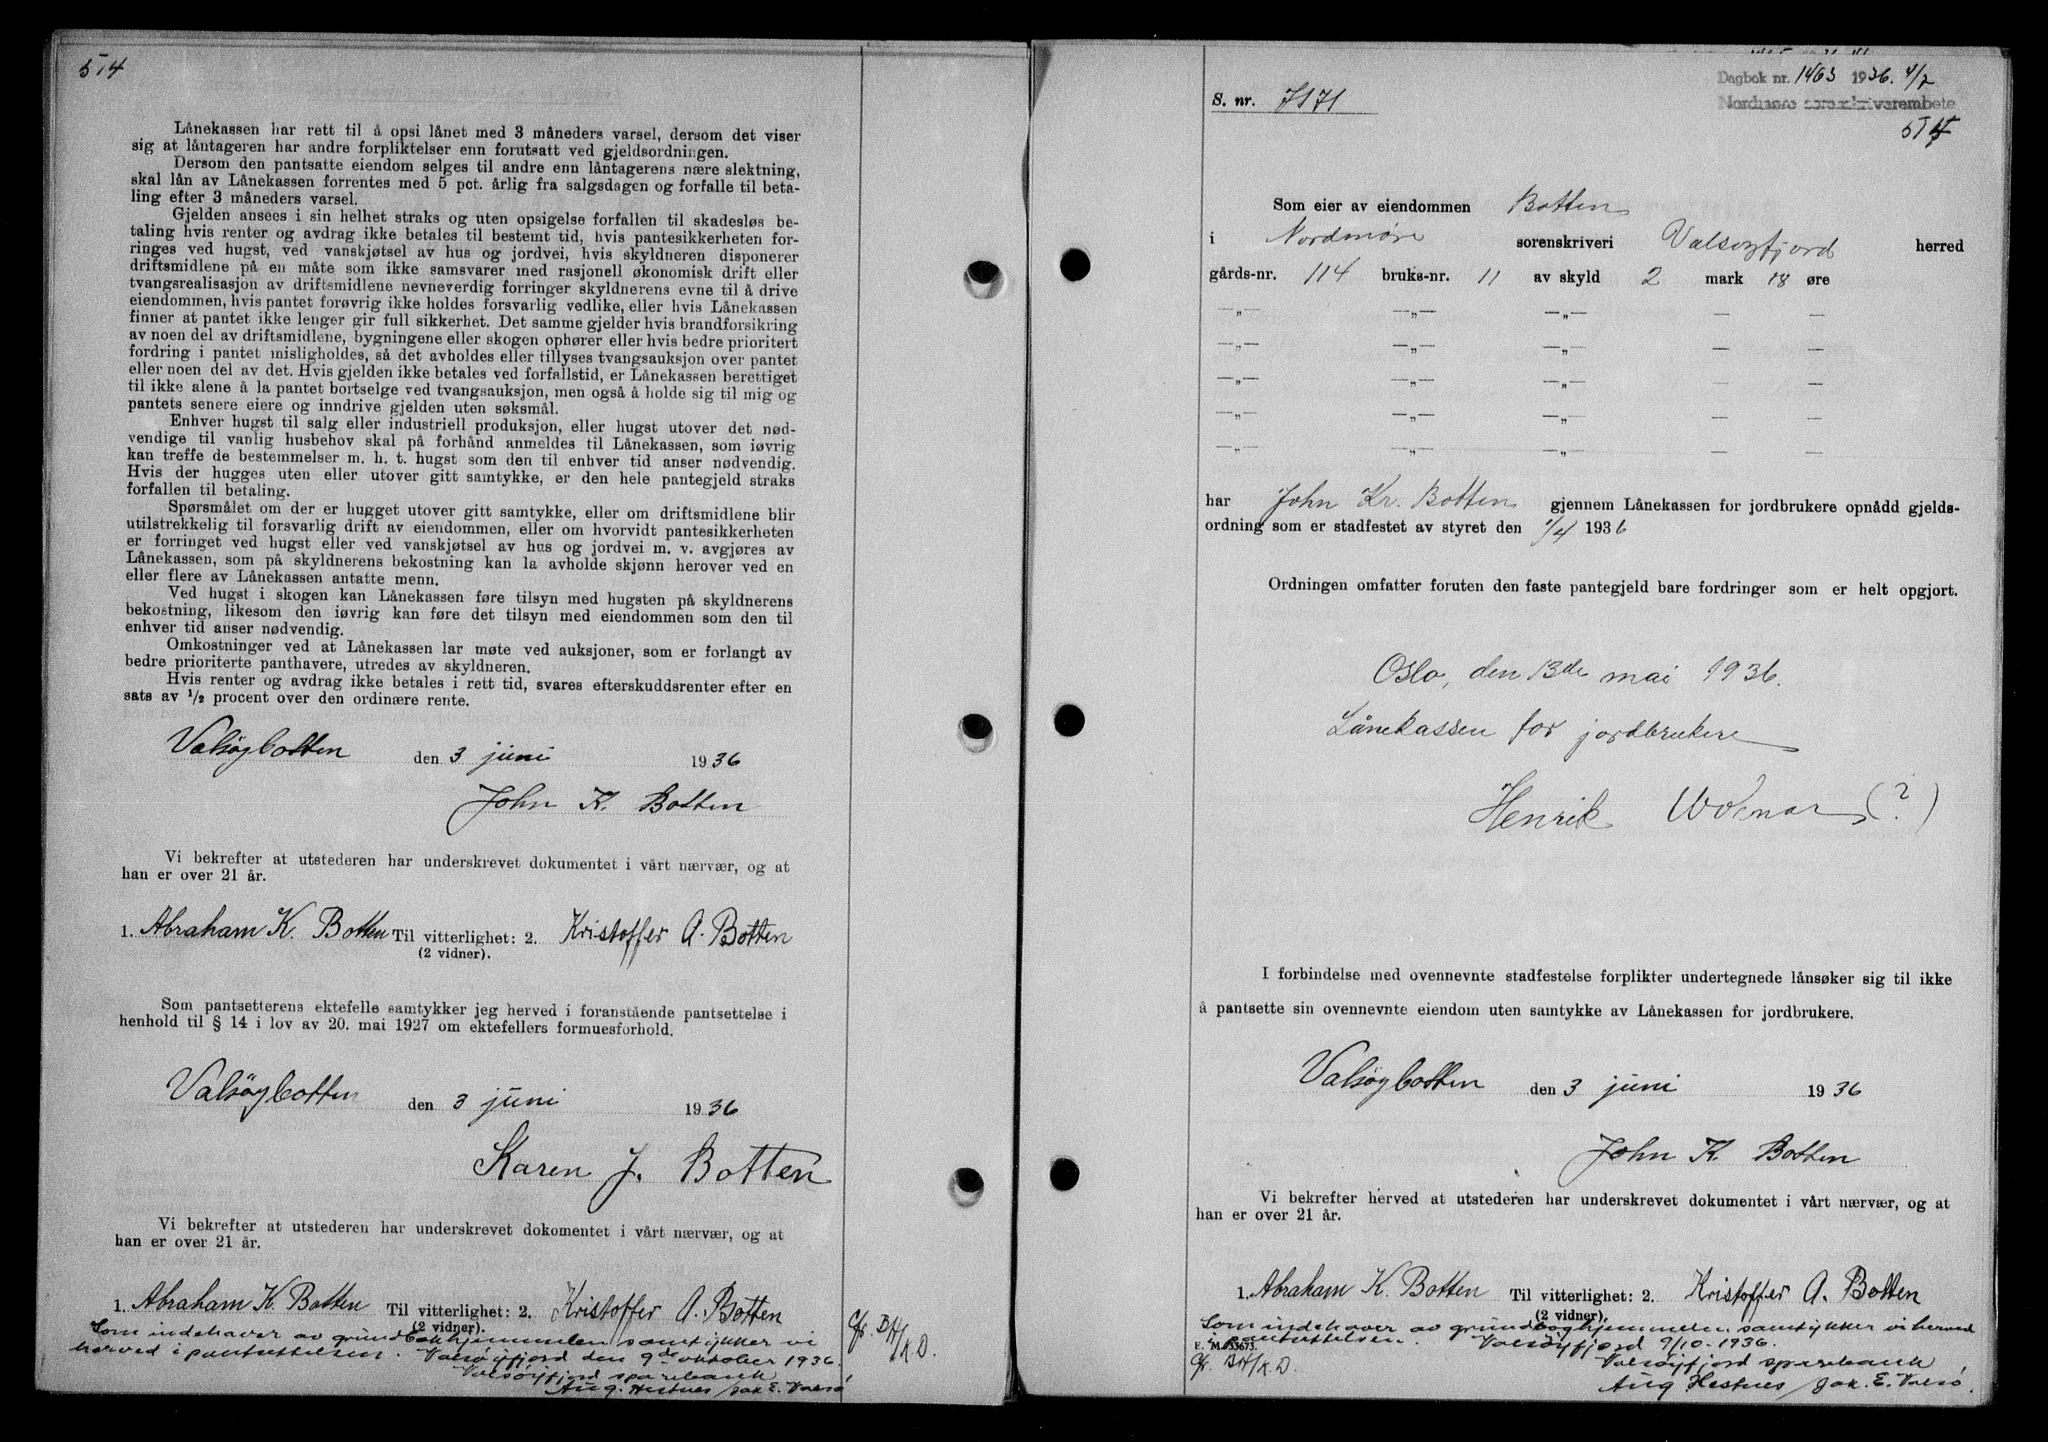 574
Lånekassen har rett til å opsi lånet med 3 måneders varsel, dersom det viser
sig at låntageren har andre forpliktelser enn forutsatt ved gjeldsordningen.
Dersom den pantsatte eiendom selges til andre enn låntagerens nære slektning,
skal lån av Lånekassen forrentes med 5 pct. årlig fra salgsdagen og forfalle til beta-
ling efter 3 måneders varsel.
Gjelden ansees i sin helhet straks og uten opsigelse forfallen til skadesløs be-
taling hvis renter og avdrag ikke betales til bestemt tid, hvis pantesikkerheten for-
ringes ved hugst, ved vanskjøtsel av hus og jordvei, hvis skyldneren disponerer
driftsmidlene på en måte som ikke samsvarer med rasjonell økonomisk drift eller
tvangsrealisasjon av driftsmidlene nevneverdig forringer skyldnerens evne til å drive
eiendommen, hvis pantet forøvrig ikke holdes forsvarlig vedlike, eller hvis Lånekassen
finner at pantet ikke lenger gir full sikkerhet. Det samme gjelder hvis brandforsikring
av noen del av driftsmidlene, bygningene eller skogen ophører eller hvis bedre prioritert
fordring i pantet misligholdes, så det avholdes eller tillyses tvangsauksjon over pantet
eller noen del av det. Hvis gjelden ikke betales ved forfallstid, er Lånekassen berettiget
til ikke alene å la pantet bortselge ved tvangsauksjon, men også å holde sig til mig og
pantets senere eiere og inndrive gjelden uten søksmål.
Enhver hugst til salg eller industriell produksjon, eller hugst utover det nød-
vendige til vanlig husbehov skal på forhånd anmeldes til Lånekassen, som iøvrig
kan treffe de bestemmelser m. h. t. hugst som den til enhver tid anser nødvendig.
Hvis der hugges uten eller utover gitt samtykke, er den hele pantegjeld straks
forfallen til betaling.
Spørsmålet om der er hugget utover gitt samtykke, eller om driftsmidlene blir
utilstrekkelig til forsvarlig drift av eiendommen, eller om hvorvidt pantesikkerheten
er forringet ved hugst eller ved vanskjøtsel av hus og jordvei m. v. avgjøres av
Lånekassen, som på skyldnerens bekostning kan la avholde skjønn herover ved en
eller flere av Lånekassen antatte menn.
Ved hugst i skogen kan Lånekassen føre tilsyn med hugsten på skyldnerens
bekostning, likesom den iøvrig kan føre det tilsyn med eiendommen som den til
enhver tid anser nødvendig.
Omkostninger ved at Lånekassen lar møte ved auksjoner, som er forlangt av
bedre prioriterte panthavere, utredes av skyldneren.
Hvis renter og avdrag ikke betales i rett tid, svares efterskuddsrenter efter en
sats av 1/2 procent over den ordinære rente.
Valsøybotten den 3 juni 1936
John K. Botten
Vi bekrefter at utstederen har underskrevet dokumentet i vårt nærvær, og at
han er over 21 år.
1. Abraham K. Botten Til vitterlighet: 2. Kristoffer A. Botten
(2 vidner).
Som pantsetterens ektefelle samtykker jeg herved i foranstående pantsettelse i
henhold til § 14 i lov av 20. mai 1927 om ektefellers formuesforhold.
Valsöybotten den 3 juni 1936
Karen J. Botten
Vi bekrefter at utstederen har underskrevet dokomentet i vårt nærvær, og at
han er over 21 år.
1. Abraham K. Botten Til vitterlighet: 2. Kristoffer A. Botten
(2 vidner).
Som indehaver av grundbokhjemmelen samtykker vi
herved i pantsettelsen. Valsöyfjord den 9de oktober 1936.
Valsöyfjord sparebank
Aug. Hestnes Jak E. Valsö
Dagbok nr. 1463 1936. 4/7
Nordmøre sorenskriverembete
574
S. nr. 7171
Som eier av eiendommen Botten
i Nordmøre sorenskriveri Valsøyfjord herred
gårds-nr. 114 bruks-nr. 11 av skyld 2 mark 18 øre
—„— —„— —„— — —
—„— —„— —„— — —
—„— —„— —„— — —
—„— —„— —„— — —
—„— —„— —„— — —
har John Kr. Botten gjennem Lånekassen for jordbrukere opnådd gjelds-
ordning som er stadfestet av styret den 1/4 1936
Ordningen omfatter foruten den faste pantegjeld bare fordringer som er helt opgjort.
Oslo, den 13de mai 1936.
Lånekassen for jordbrukere
Henrik (?)
I forbindelse med ovennevnte stadfestelse forplikter undertegnede lånsøker sig til ikke
å pantsette sin ovennevnte eiendom uten samtykke av Lånekassen for jordbrukere.
Valsøybotten den 3 juni 1936
John K. Botten
Vi bekrefter herved at utstederen har underskrevet dokumentet i vårt nærvær, og at
han er over 21 år.
1. Abraham K. Botten Til vitterlighet: 2. Kristoffer A. Botten
(2 vidner).
Som indehaver av grundboghjemmelen samtykker vi herved
i pantsettelsen. Valsøyfjord 9/10. 1936.
Valsøyfjord sparebank
Aug Hestnes Jak. E. Valsö.